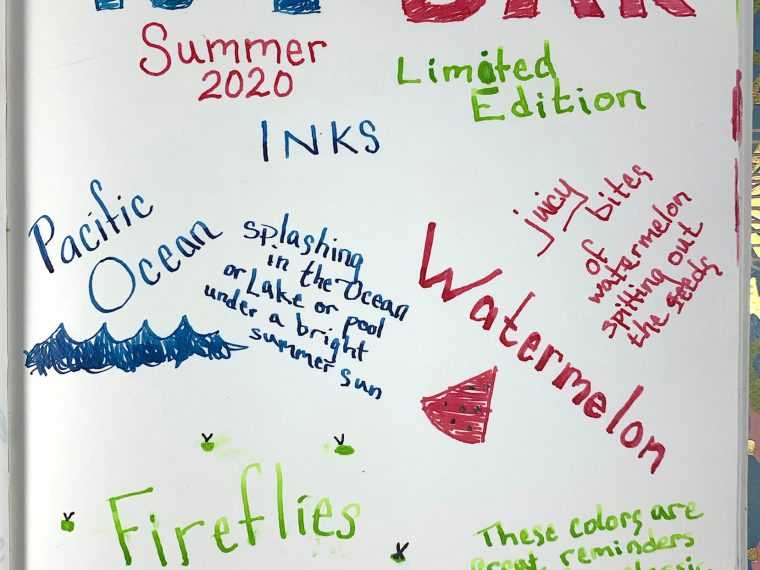 Summer
2020
Limited
Edition
INKS
Pacific
Ocean
splashing
in the Ocean
or Lake or pool
under a bright
summer sun
Watermelon
juicy bites
of
watermelon
spitting out
the seeds
Fireflies
These colors are
great reminders
classic